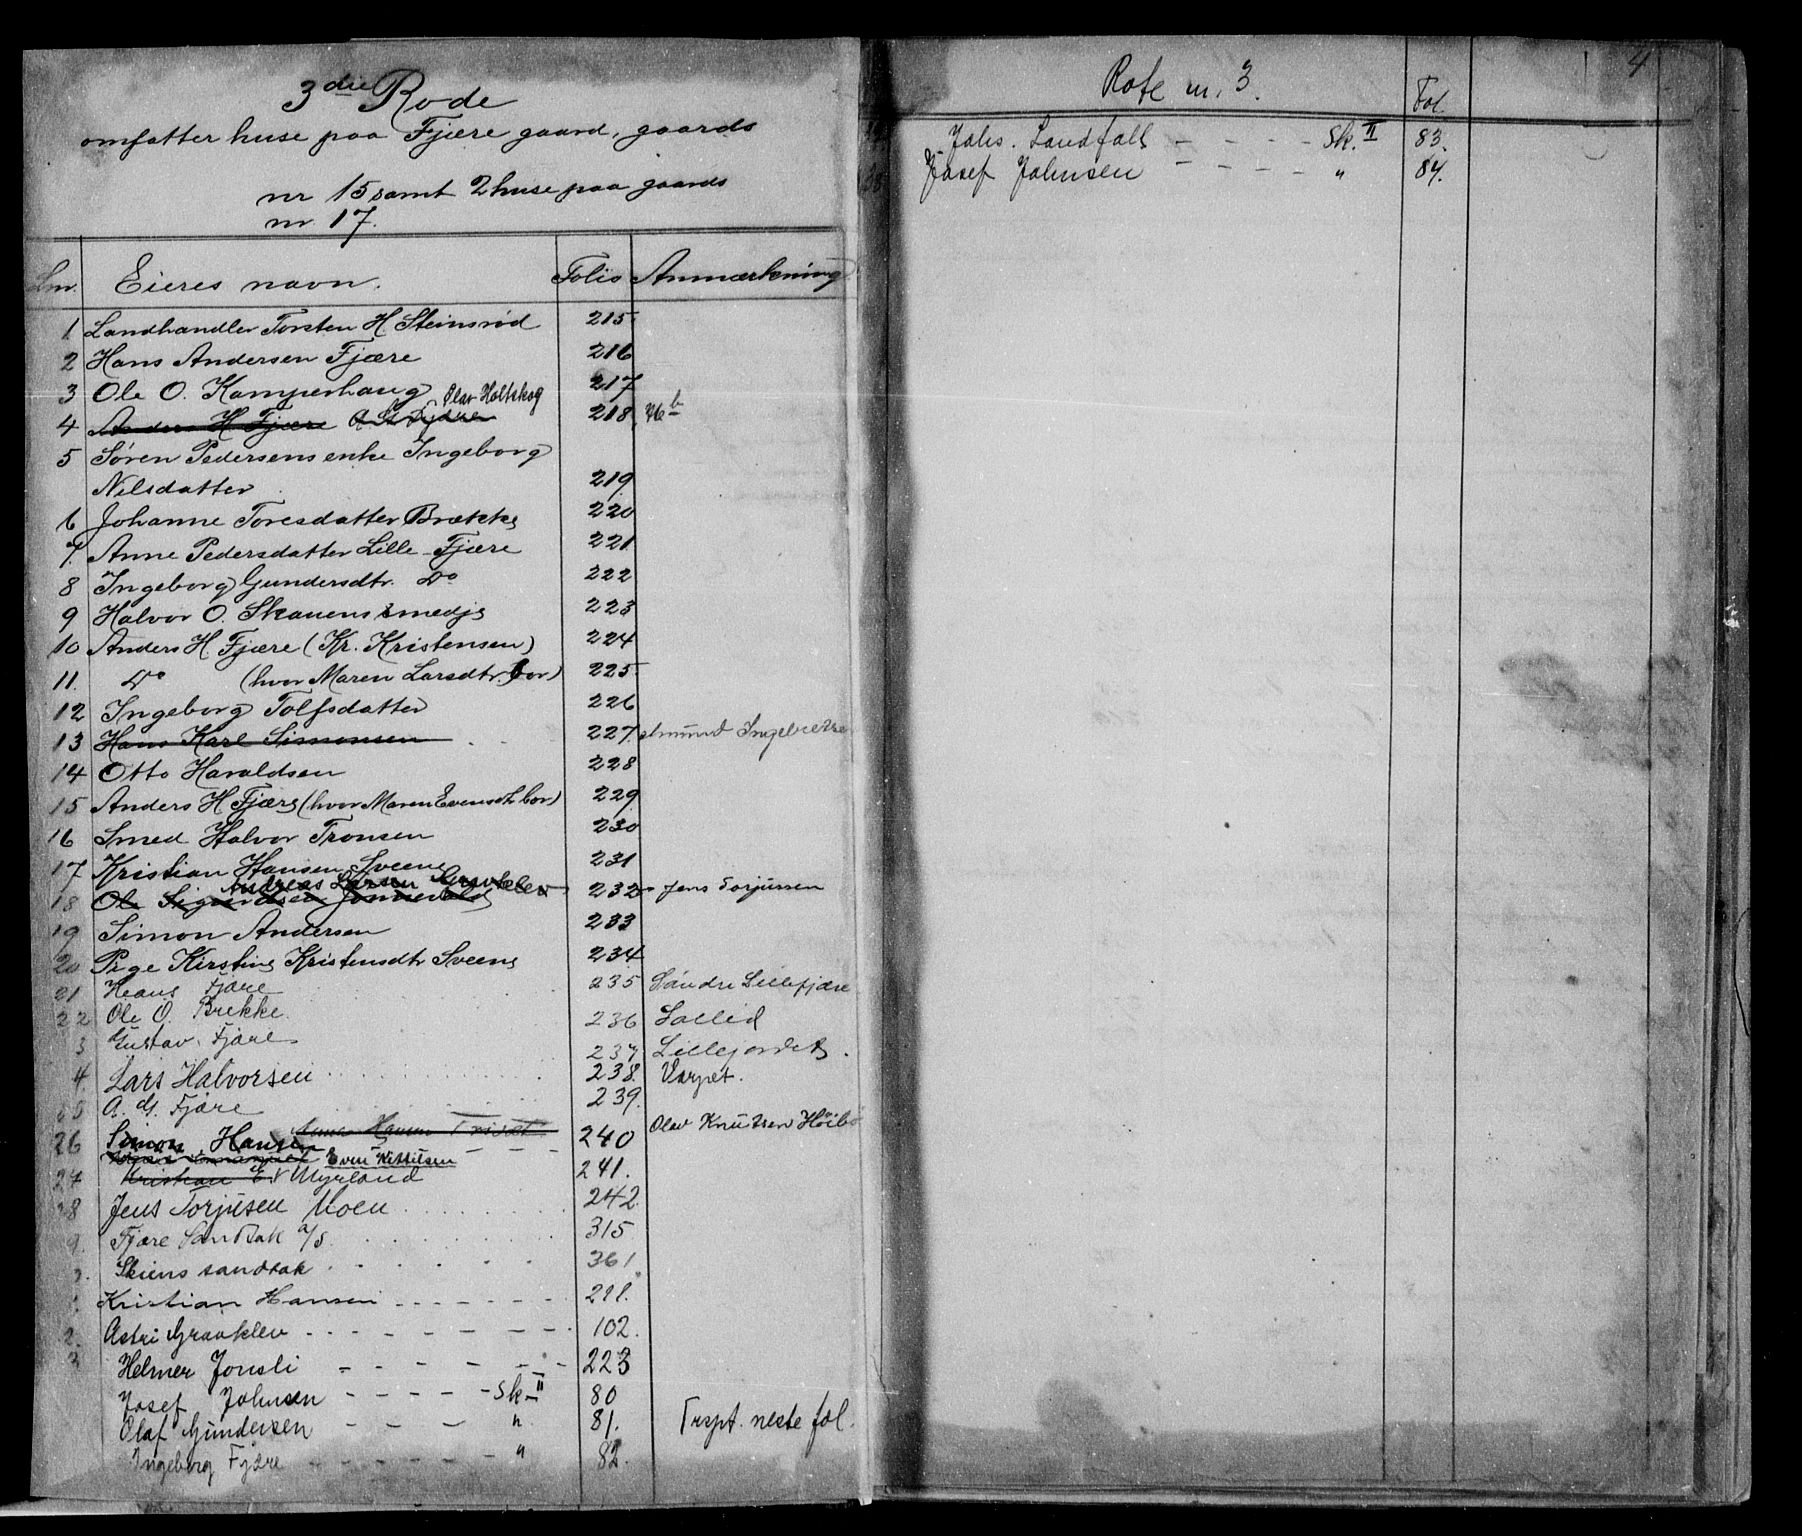 3die Rode
omfatter huse paa Fjære gaard, gaards
nr 15 samt 2 huse paa gaards
nr 17.
Lnr. Eieres navn. Folio Anmærkning
1. Landhandler Torsten H. Steinsrød 215
2 Hans Andersen Fjære 216
3 Ole O. Kamperhaug 217
Olav Holtskog
4 Anders H Fjære A H Fjære 218 46b
5 Søren Pedersens enke Ingeborg
Nilsdatter 219
6 Johanne Toresdatter Brække 220
7. Anne Pedersdatter Lille-Fjære 221
8 Ingeborg Gundersdtr. Do 222
9 Halvor O. Skauens smedje 223
10 Anders H. Fjære (Kr. Kristensen) 224
11. Do (hvor Maren Larsdtr. bor) 225
12 Ingeborg Tolfsdatter 226
13 Hans Karl Simonsen 227. Ingebretse
14 Otto Haraldsen 228
15 Anders H Fjære (hvor Maren Evensdt. bor) 229
16 Smed Halvor Tronsen 230
17 Kristian Hansen Sveene 231
Andreas Larsen
18 Ole Sigurdsen 232 Jens Torjussen
19 Simon Andersen 233
20 Pige Kirstine Kristensdtr Sveene 234
21 Hans Fjære 235 Søndre Lillefjære
22 Ole O. Brekke 236
3 Gustav Fjære 237 Lillejordet.
4. Lars Halvorsen 238. Varpet.
25 A. H. Fjære 239.
Anne Hansen
26 Simon Hansen 240 Olav Knutsen Höibö
Even Kittilsen 241.
27 Kristian E. Myrland
28 Jens Torjusen Moen 242
9. Fjære Sandtak a/s 315
Skiens sandtak 361
1. Kristian Hansen 211.
2. Astri Graaklev 102.
3 Helmer Jonsli 223
Josef Johnsen Sk II 80
Olaf Gundersen " 81. Trspt. neste fol.
Ingeborg Fjære " 82.
4
Rote nr. 3. Fol.
Johs. Landfall Sk. II 83.
Josef Johnsen " 84.